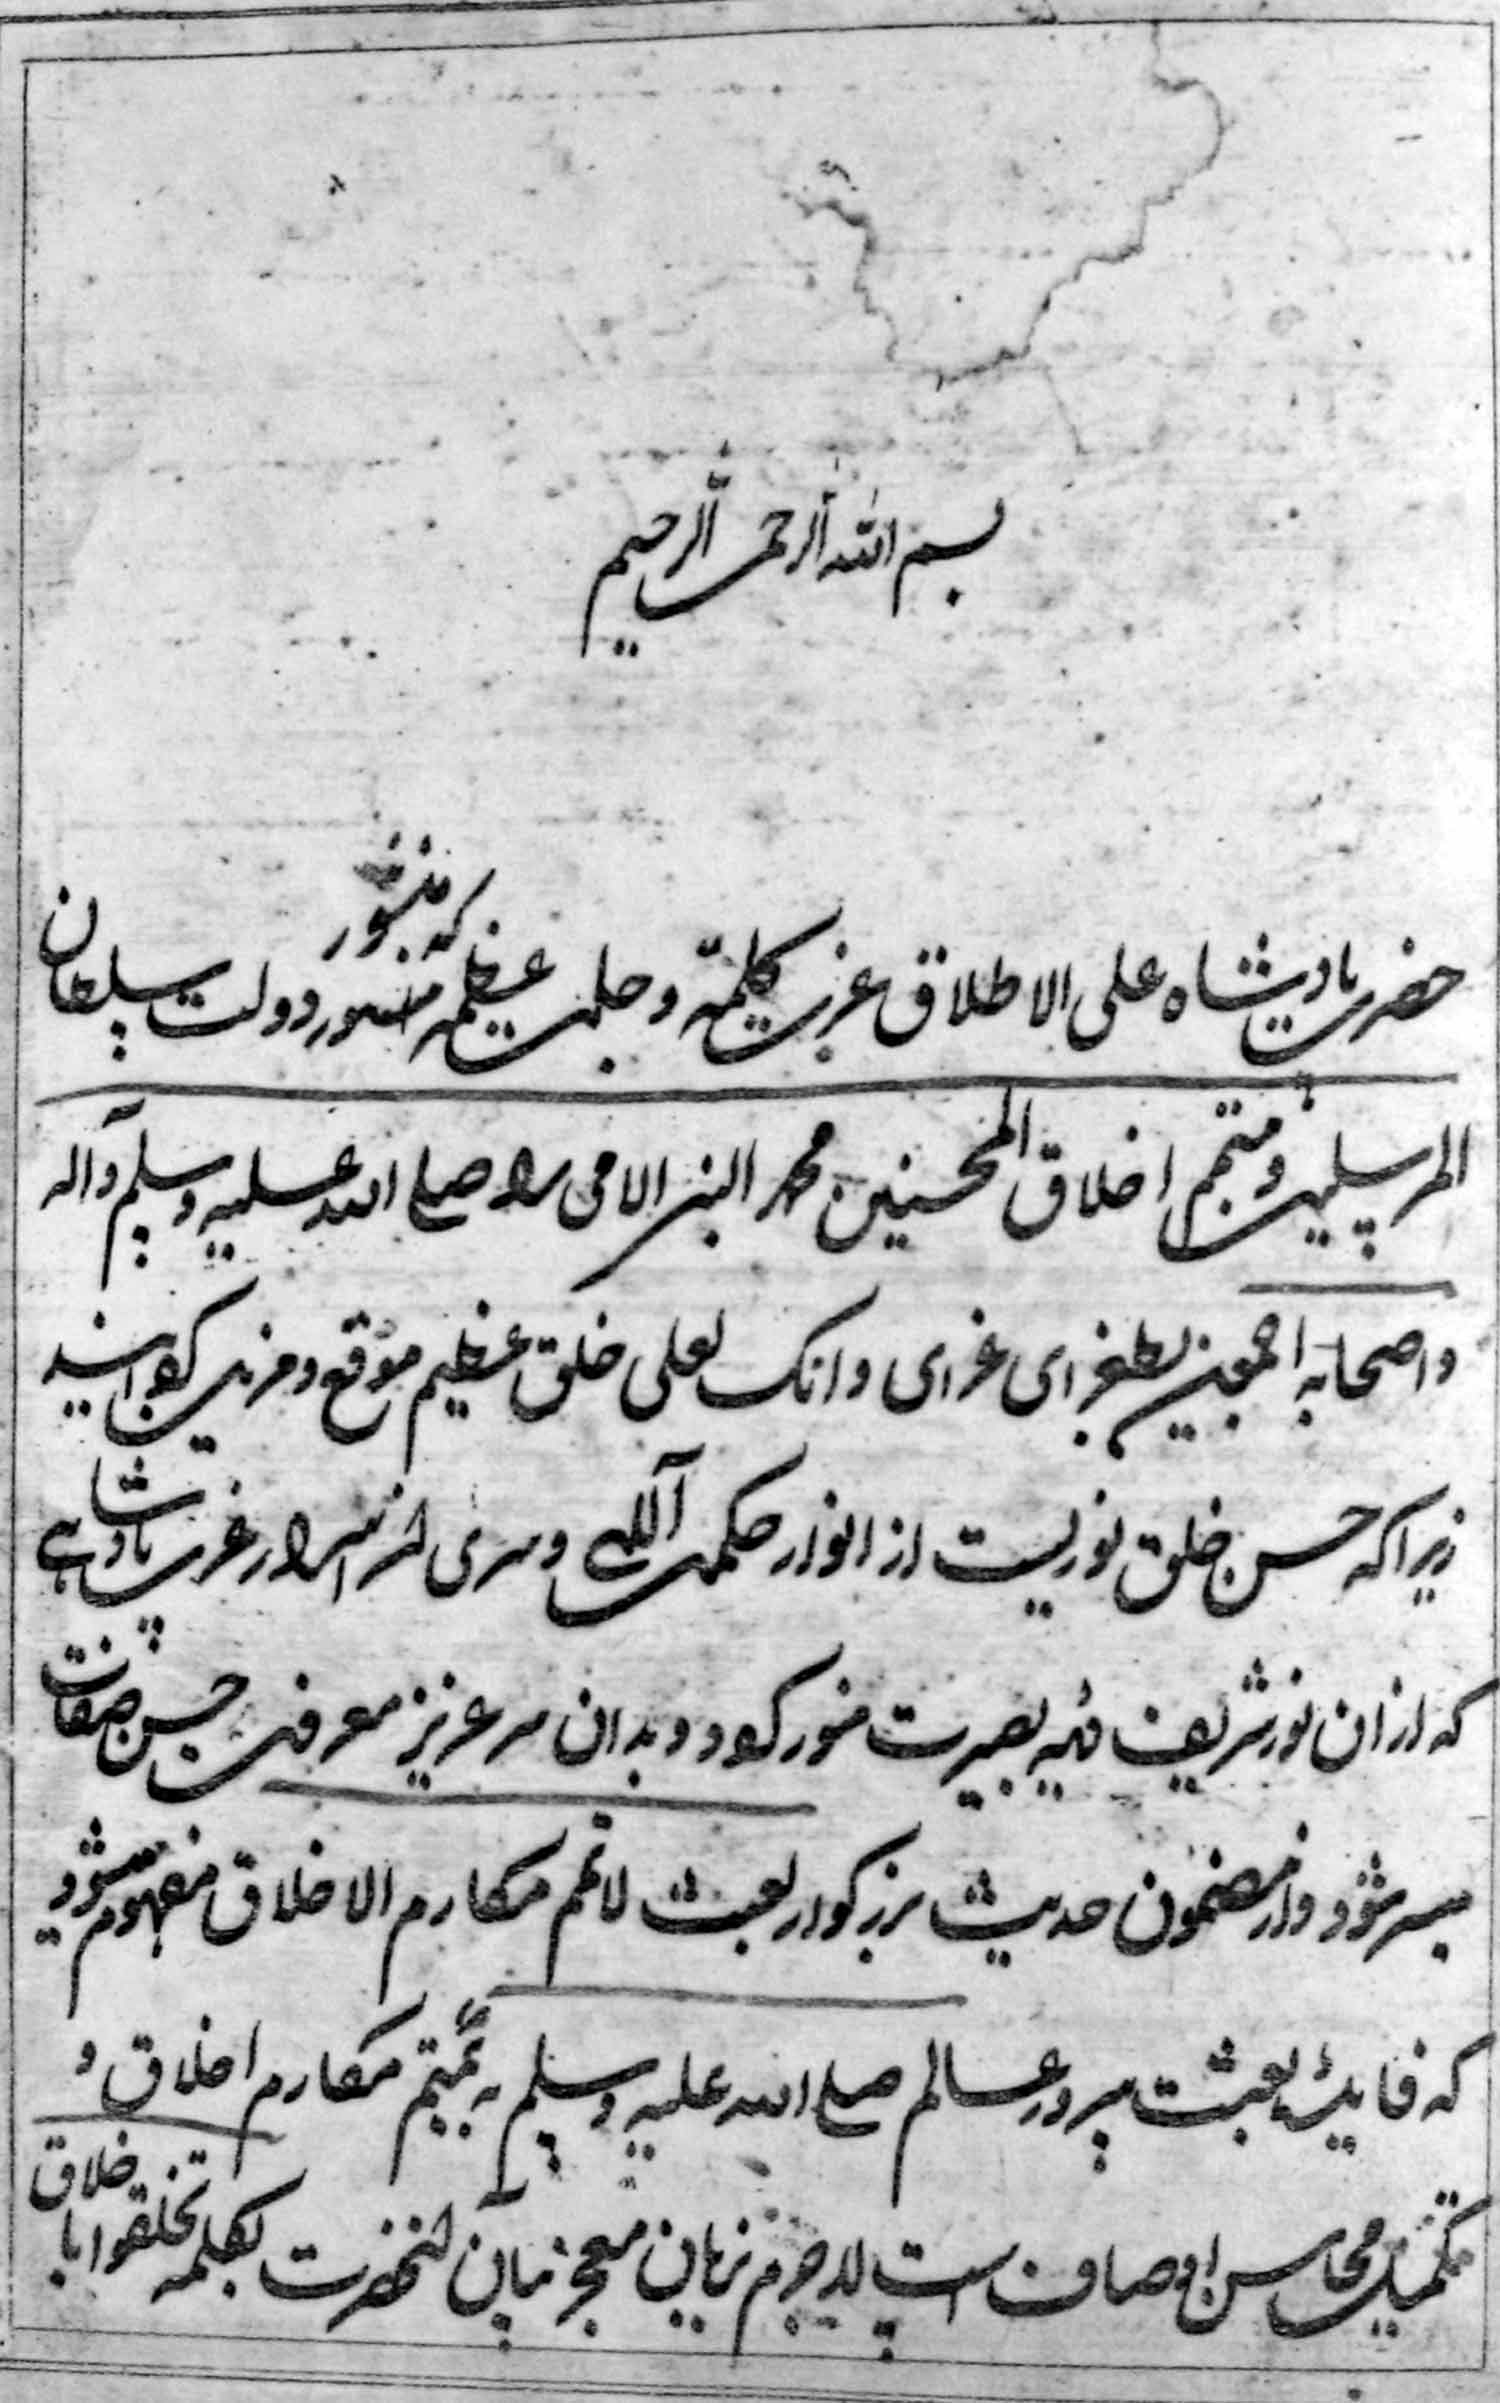 بسم الله الرحمن الرحیم
که منشور
حضرت پادشاه علی الاطلاق عزت کلمته و جلت عظمته منشور دولت سلطان
المرسلین و متمم اخلاق المحسنین محمد النبی الامی را صلی الله علیه وسلم وآله
و اصحابه اجمعین بطغرای غرای و انک لعلی خلق عظیم موقع و مزین کردانید
زیرا که حسن خلق نوریست از انوار حکمت آلهی و سری از اسرار عزت پادشاهی
که از ان نور شریف دیده بصیرت منور کردد و بدان سر عزیز معرفت حسن صفات
میسر شود و از مضمون حدیث بزرکوار بعثت لاتمم مکارم الاخلاق مفهوم میشود
که فایده بعثت سرور عالم صلی الله علیه وسلم به تتمیم مکارم اخلاق و
تکمیل محاسن اوصاف است لاجرم زبان معجز بیان آنحضرت بکلمه تخلقوا باخلاق